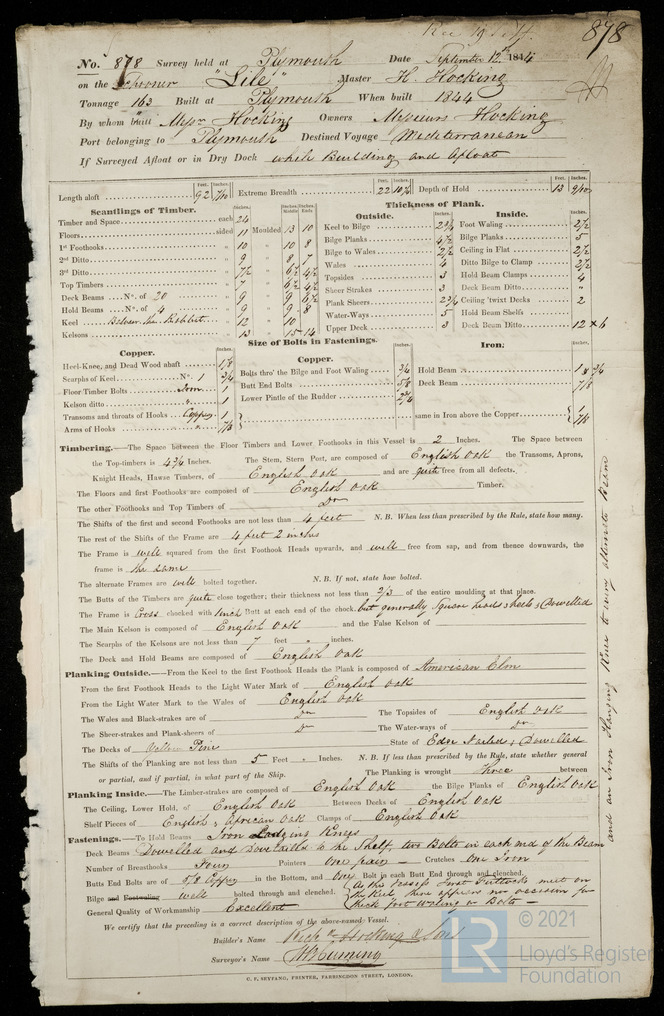 Rec 19 Sept
878
No. 878 Survey held at Plymouth Date September 12th 1844
on the Schooner "Lile" Master H. Hocking
Tonnage 163 Built at Plymouth When built 1844
By whom built Messrs Hocking Owners Messieurs Hocking
Port belonging to Plymouth Destined Voyage Mediterranean
If Surveyed Afloat or in Dry Dock while Building and afloat
Feet. Inches. Feet. Inches. Feet. Inches.
Length aloft 92 7/10 Extreme Breadth 22 10/12 Depth of Hold 13 9/10
Scantlings of Timber. Thickness of Plank.
Outside. Inside.
Timber and Space each 24
Floors sided 11 Moulded 13 10
1st Foothooks „ 10 „ 10 8
2nd Ditto „ 9 „ 8½ 7
3rd Ditto „ 7½ „ 6½ 4½
Top Timbers „ 7 „ 6½ 4½
Deck Beams No. of 20 „ 9 „ 9 6½
Hold Beams No. of 4 „ 9 „ 9 8
Keel Below the Rabbet „ 12 „ 10
Kelsons „ 13 „ 15 14
Keel to Bilge 2¾
Bilge Planks 4½
Bilge to Wales 2½
Wales 4
Topsides 3
Sheer Strakes 3
Plank Sheers 2¾
Water-Ways 5
Upper Deck 3
Foot Waling 2½
Bilge Planks 5
Ceiling in Flat 2½
Ditto Bilge to Clamp 2½
Hold Beam Clamps 4
Deck Beam Ditto „
Ceiling 'twixt Decks 2
Hold Beam Shelfs „
Deck Beam Ditto 12 x 6
Size of Bolts in Fastenings.
Copper. Copper. Iron.
Heel-Knee, and Dead Wood abaft 1⅛
Scarphs of Keel No. 1 ¾
Floor Timber Bolts Iron 1
Kelson ditto „ 1
Transoms and throats of Hooks Copper 1
Arms of Hooks „ ⅞
Bolts thro' the Bilge and Foot Waling ¾
Butt End Bolts ⅝
Lower Pintle of the Rudder 2¾
Hold Beam 1 & ¾
Deck Beam ⅞
same in Iron above the Copper 1 ⅞
Timbering.—The Space between the Floor Timbers and Lower Foothooks in this Vessel is 2 Inches. The Space between
the Top-timbers is 4¾ Inches. The Stem, Stern Post, are composed of English Oak the Transoms, Aprons,
Knight Heads, Hawse Timbers, of English Oak and are quite free from all defects.
The Floors and first Foothooks are composed of English Oak Timber.
The other Foothooks and Top Timbers of Do
The Shifts of the first and second Foothooks are not less than 4 feet N. B. When less than prescribed by the Rule, state how many.
The rest of the Shifts of the Frame are 4 feet 2 inches
The Frame is well squared from the first Foothook Heads upwards, and well free from sap, and from thence downwards, the
frame is the same
The alternate Frames are well bolted together. N. B. If not, state how bolted.
The Butts of the Timbers are quite close together; their thickness not less than 2/3 of the entire moulding at that place.
The Frame is Cross chocked with Butt at each end of the chock. but generally Square heads & heels & Dowelled
The Main Kelson is composed of English Oak and the False Kelson of
The Scarphs of the Kelsons are not less than 7 feet „ inches.
The Deck and Hold Beams are composed of English Oak
Planking Outside.—From the Keel to the first Foothook Heads the Plank is composed of American Elm
From the first Foothook Heads to the Light Water Mark of English Oak
From the Light Water Mark to the Wales of English Oak
The Wales and Black-strakes are of Do The Topsides of English Oak
The Sheer-strakes and Plank-sheers of Do The Water-ways of Do
The Decks of Yellow Pine State of Edge Nailed & Dowelled
The Shifts of the Planking are not less than 5 Feet „ Inches. N. B. If less than prescribed by the Rule, state whether general
or partial, and if partial, in what part of the Ship. The Planking is wrought three between
Planking Inside.—The Limber-strakes are composed of English Oak the Bilge Planks of English Oak
The Ceiling, Lower Hold, of English Oak Between Decks of English Oak
Shelf Pieces of English & African Oak Clamps of English Oak
Fastenings.—To Hold Beams Iron Lodging Knees
Deck Beams Dowelled and Dovetailed to the Shelf, two Bolts in each end of the Beam
and an Iron Hanging Knee to every alternate Beam
Number of Breasthooks Four Pointers One pair — Crutches One Iron
Butts End Bolts are of 5/8 Copper in the Bottom, and One Bolt in each Butt End through and clenched.
Bilge and Footwaling well bolted through and clenched. As the first Futtocks meet on
General Quality of Workmanship Excellent the keel there appears no occasion for thick foot waling or Bolts —
We certify that the preceding is a correct description of the above-named Vessel.
Builder's Name Richd Hocking & Son
Surveyor's Name Cuming
C. F. SEYFANG, PRINTER, FARRINGDON STREET, LONDON.
© 2021
LR
Lloyd's Register
Foundation